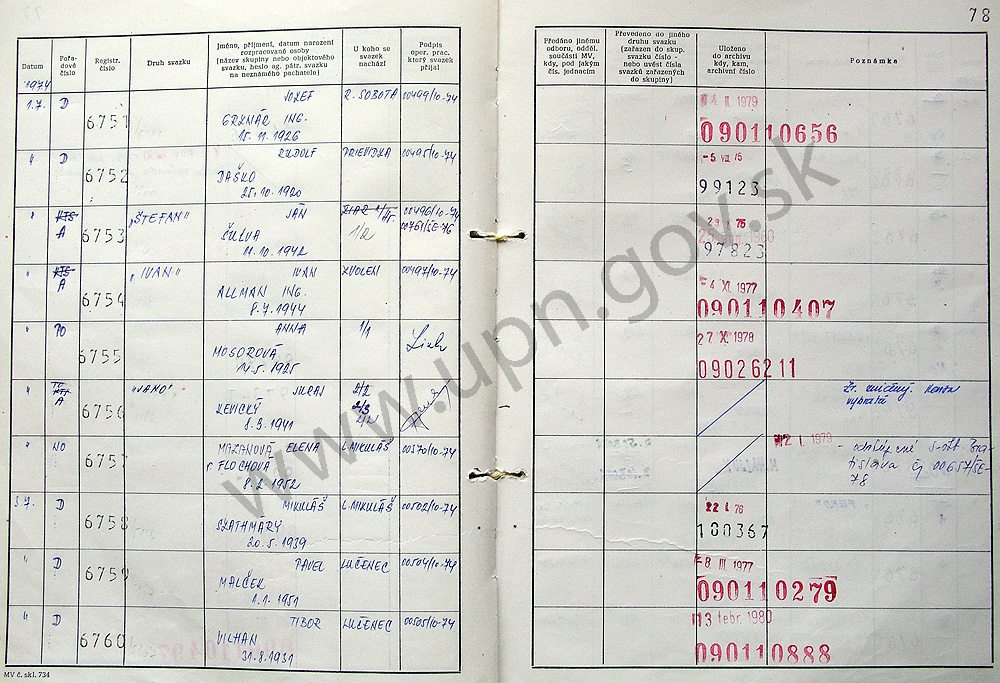 78
Datum
Pořadové číslo
Registr. číslo
Druh svazku
Jméno, příjmení, datum narození rozpracované osoby (název skupiny nebo objektového svazku, heslo ag. pátr. svazku na neznámého pachatele)
U koho se svazek nachází
Podpis oper. prac. který svazek přijal
Předáno jinému odboru, odděl. součásti MV, kdy, pod jakým čís. jednacím
Převedeno do jiného druhu svazku (zařazen do skup. svazku číslo - nebo uvést čísla svazků zařazených do skupiny)
Uloženo do archivu kdy, kam, archivní číslo
Poznámka
1974
1.7. D 6751 JOZEF R. SOBOTA 00499/10-74
GRZNÁR ING.
15. 11. 1926
II 1979
090110656
" D 6752 RUDOLF PRIEVIDZA 00495/10-74
DAŠKO
25. 10. 1920
-5 VIII 75
99123
" KTS A 6753 „ŠTEFAN" JÁN 1/2 00496/10-74
00761/SE-76
ŠULVA
11. 10. 1942
23 I 76
97823
" KTS A 6754 „IVAN" IVAN ZVOLEN 00497/10-74
ALLMAN ING.
8. 7. 1944
-4 XI. 1977
090110407
" PO 6755 ANNA 1/1
MOSOROVÁ
14. 5. 1925
27 X 1978
09026211
" A 6756 „VANO" JURAJ 2/2
2/3
KEVICKÝ
8. 9. 1941
Zv. zničený. Karta
vybratá
" NO 6757 MAZANOVÁ ELENA L. MIKULÁŠ 00570/10-74
r. FLOCHOVÁ
8. 2. 1952
2 I. 1979
- odstúpené S-ŠtB Bra-
tislava Čj 00657/SE-
78
3.7. D 6758 MIKULÁŠ L. MIKULÁŠ 00502/10-74
SZATHMÁRY
20. 5. 1939
22 I 76
100367
" D 6759 PAVEL LUČENEC 00504/10-74
MALČEK
1. 1. 1951
-8 III 1977
090110279
" D 6760 TIBOR LUČENEC 00505/10-74
VILHAN
31. 8. 1931
13 febr 1980
090110888
MV č. skl. 734
www.upn.gov.sk